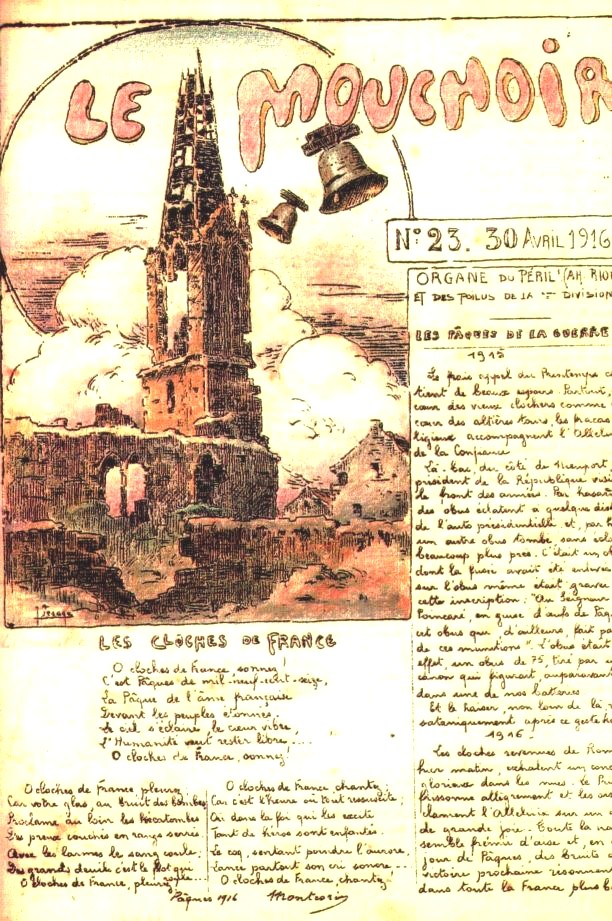 LE MOUCHOIR
N° 23. 30 AVRIL 1916
ORGANE DU PÉRIL (AH RIO
ET DES POILUS DE LA DIVISION
LES PÂQUES DE LA GUERRE
1915
Le frais appel du Printemps
tient de beaux espoirs. Partout,
cœur des vieux clochers comme
cœur des altières tours, les fracas
ligieux accompagnent l'Allél
de la Confiance
Là-bas, du côté de Nieuport,
président de la République visi
le front des armées. Par hasar
des obus éclatent a quelque dis
de l'auto présidentielle et, par
un autre obus tombe, sans
beaucoup plus près. C'était un
dont la fusée avait été enlevé
sur l'obus même était gravé
cette inscription: "Au Seigneur
Poincaré, en guise d'œufs de Pâq
cet obus que d'ailleurs, fait pa
de ces munitions". L'obus était
effet, un obus de 75, tiré par
canon qui figurait, auparavant
dans une de nos batteries
Et le Kaiser, non loin de là,
sataniquement après ce geste
1916.
Les cloches revenues de Rome
hier matin, exhalent un con
glorieux dans les nues. Le Pr
frissonne allègrement et les
clament l'Alleluia sur un
de grande joie. Toute la na
semble frémir d'aise et, en
jour de Pâques, des bruits
victoire prochaine résonnen
dans toute la France plus
LES CLOCHES DE FRANCE
O cloches de France sonnez!
C'est Pâques de mil-neuf-cent-seize,
La Pâque de l'âme française
Devant les peuples étonnés,
Le ciel s'éclaire, le cœur vibre,
L'Humanité veut rester libre,....
O cloches de France, sonnez!
O cloches de France, pleurez
Car votre glas, au bruit des bombes
Proclame au loin les hécatombes
Des preux couchés en rangs serrés
Avec les larmes le sang coule.
Des grands deuils c'est le flot qui
O cloches de France, pleurez
O cloches de France, chantez,
Car c'est l'heure où tout ressuscite;
Car dans la foi qui les excite
Tant de héros sont enfantés.
Le coq, sentant poindre l'aurore,
Lance partout son cri sonore--
O cloches de France, chantez!
Pâques 1916